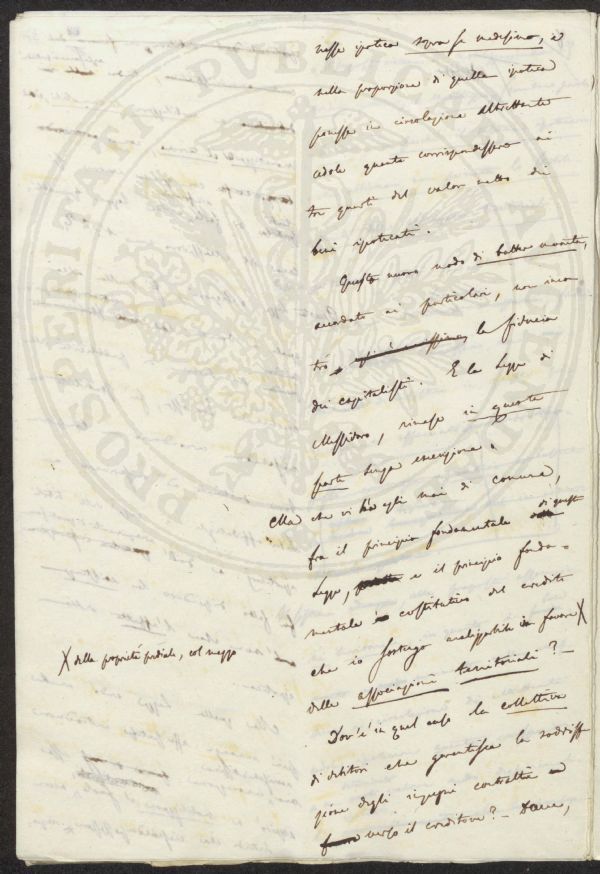 nesse ipoteca sopra se medesimo, e
nella proporzione di quella ipoteca
ponesse in circolazione altrettante
cedole quante corrispondessero ai
tre quarti del valor netto dei
beni ipotecati.
Questo nuovo modo di batter moneta,
accordato ai particolari, non incon
trò la fiducia
dei capitalisti. E la legge di
Messidoro, rimase in questa
parte senza esecuzione.
Ma che vi ha egli mai di comune,
fra il principio fondamentale di questa
legge, e il principio fonda-
mentale costitutivo del credito
che io sostengo realizzabile in favore X
X della proprietà prediale, col mezzo
delle associazioni territoriali? -
Dov'è in quel caso la collettiva
di debitori che garantisca la soddisfa
zione degli impegni contratti
verso il creditore? - Dove,
PROSPERITATI PUBLICAE